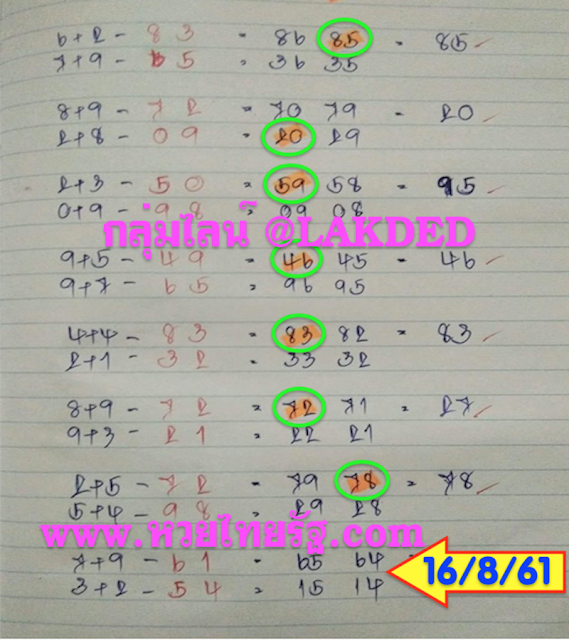 6+2 - 8 3 = 86 85 = 85 ✓
7+9 - 6 5 = 36 35
8+9 - 7 2 = 70 79 = 20 ✓
2+8 - 0 9 = 20 29
2+3 - 5 0 = 59 58 = 95 ✓
0+9 - 9 8 = 09 08
กลุ่มไลน์ @LAKDED
9+5 - 4 9 = 46 45 = 46 ✓
9+7 - 6 5 = 96 95
4+4 - 8 3 = 83 82 = 83 ✓
2+1 - 3 2 = 33 32
8+9 - 7 2 = 72 71 = 27 ✓
9+3 - 2 1 = 22 21
2+5 - 7 2 = 79 78 = 78 ✓
5+4 - 9 8 = 29 28
www.หวยไทยรัฐ.com
7+9 - 6 1 = 65 64 =
3+2 - 5 4 = 15 14
16/8/61